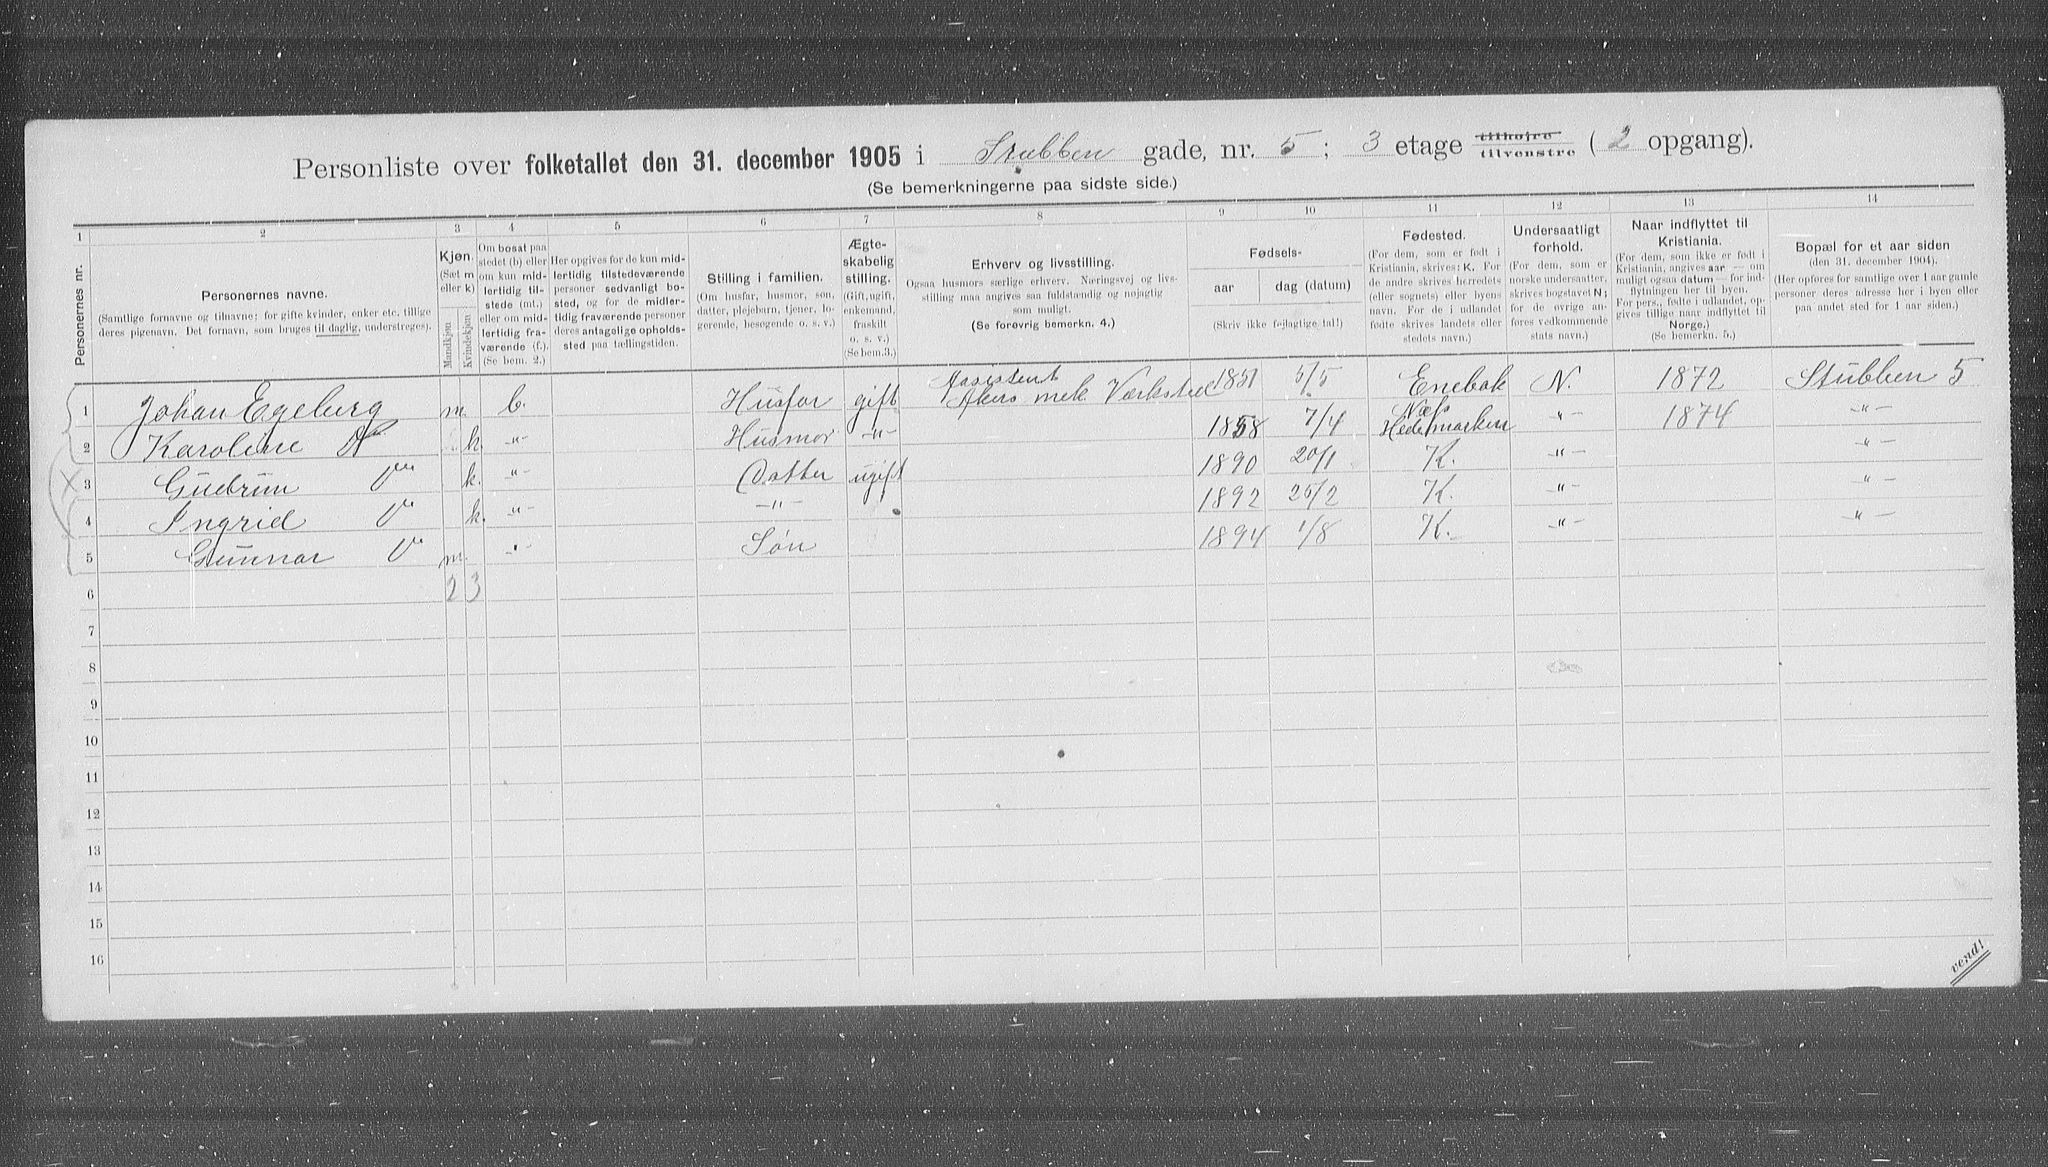 Personliste over folketallet den 31. december 1905 i Stubben gade, nr. 5 ; 3 etage tilhøire tilvenstre ( 2 opgang).
(Se bemerkningerne paa sidste side.)
1 2 3 4 5 6 7 8 9 10 11 12 13 14
Personernes nr.
Personernes navne.
(Samtlige fornavne og tilnavne; for gifte kvinder, enker etc. tillige deres pigenavn. Det fornavn, som bruges til daglig, understreges).
Kjøn.
(Sæt m eller k)
Mandkjøn
Kvindekjøn
Om bosat paa stedet (b) eller om kun midlertidig tilstede (mt.) eller om midlertidig fraværende (f.). (Se bem. 2.)
Her opgives for de kun midlertidig tilstedeværende personer sedvanligt bosted, og for de midlertidig fraværende personer deres antagelige opholdssted paa tællingstiden.
Stilling i familien.
(Om husfar, husmor, søn, datter, plejebarn, tjener, logerende, besøgende o. s. v.)
Ægteskabelig stilling.
(Gift, ugift, enkemand, fraskilt o. s. v.) (Se bem.3.)
Erhverv og livsstilling.
Ogsaa husmors særlige erhverv. Næringsvej og livsstilling maa angives saa fuldstændig og nøjagtig som muligt.
(Se forøvrig bemerkn. 4.)
Fødsels-
aar
dag (datum)
(Skriv ikke fejlagtige tal!)
Fødested.
(For dem, som er født i Kristiania, skrives: K. For de andre skrives herredets (eller sognets) eller byens navn. For de i udlandet fødte skrives landets eller stedets navn.)
Undersaatligt forhold.
(For dem, som er norske undersaatter, skrives bogstavet N; for de øvrige anføres vedkommende stats navn.)
Naar indflyttet til Kristiania.
(For dem, som ikke er født i Kristiania, angives aar — om muligt ogsaa datum — for indflytningen her til byen. For pers., fødte i udlandet, opgives tillige naar indflyttet til Norge.)
(Se bemerkn. 5.)
Bopæl for et aar siden
(den 31. december 1904).
(Her opføres for samtlige over 1 aar gamle personer deres adresse her i byen eller paa andet sted for 1 aar siden.)
1 Johan Egeberg m. b. Husfar gift Assistent Akers mek Værksted 1851 5/5 Enebak N. 1872 Stubben 5
2 Karoline k -"- Husmor -"- 1858 7/4 Næs Hedemarken -"- 1874 -"-
3 Gudrun k. -"- Datter ugift 1890 20/1 K. -"- -"-
4 Ingrid k. -"- -"- 1892 25/2 K. -"- -"-
5 Gunnar m. -"- Søn 1894 1/8 K. -"- -"-
6 2 3
7
8
9
10
11
12
13
14
15
16
vend!